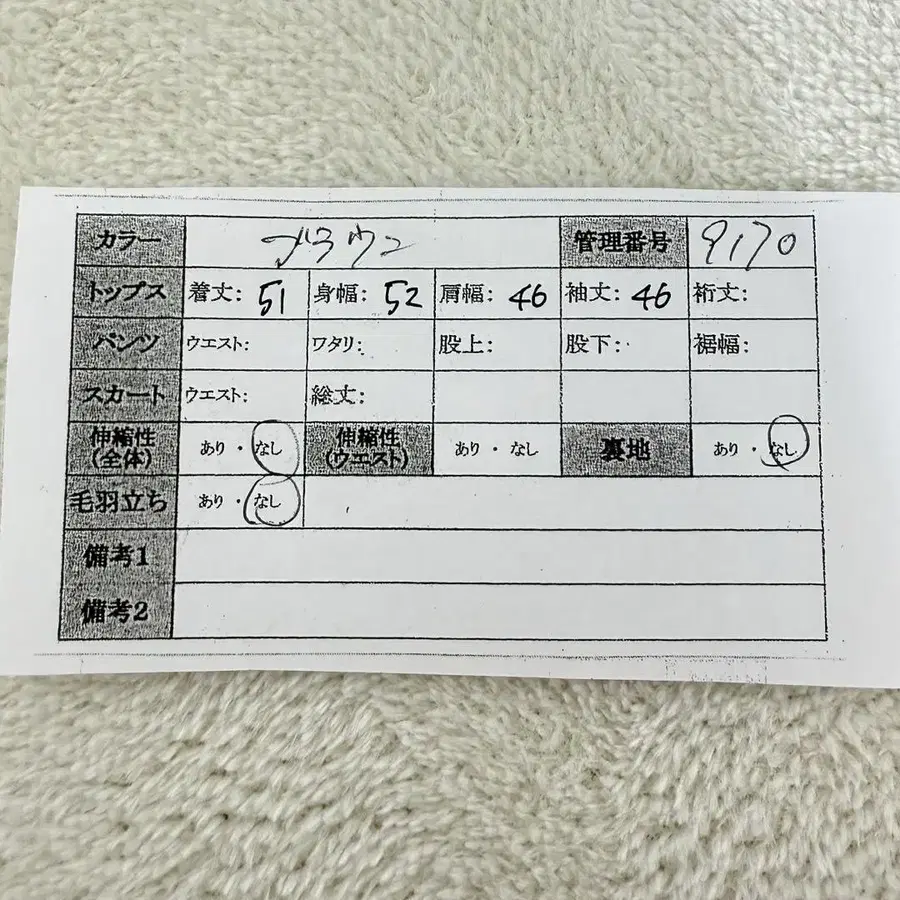 カラー ブラウン 管理番号 9170
トップス 着丈: 51 身幅: 52 肩幅: 46 袖丈: 46 裄丈:
パンツ ウエスト: ワタリ: 股上: 股下: 裾幅:
スカート ウエスト: 総丈:
伸縮性 (全体) あり・なし 伸縮性 (ウエスト) あり・なし 裏地 あり・なし
毛羽立ち あり・なし
備考1
備考2